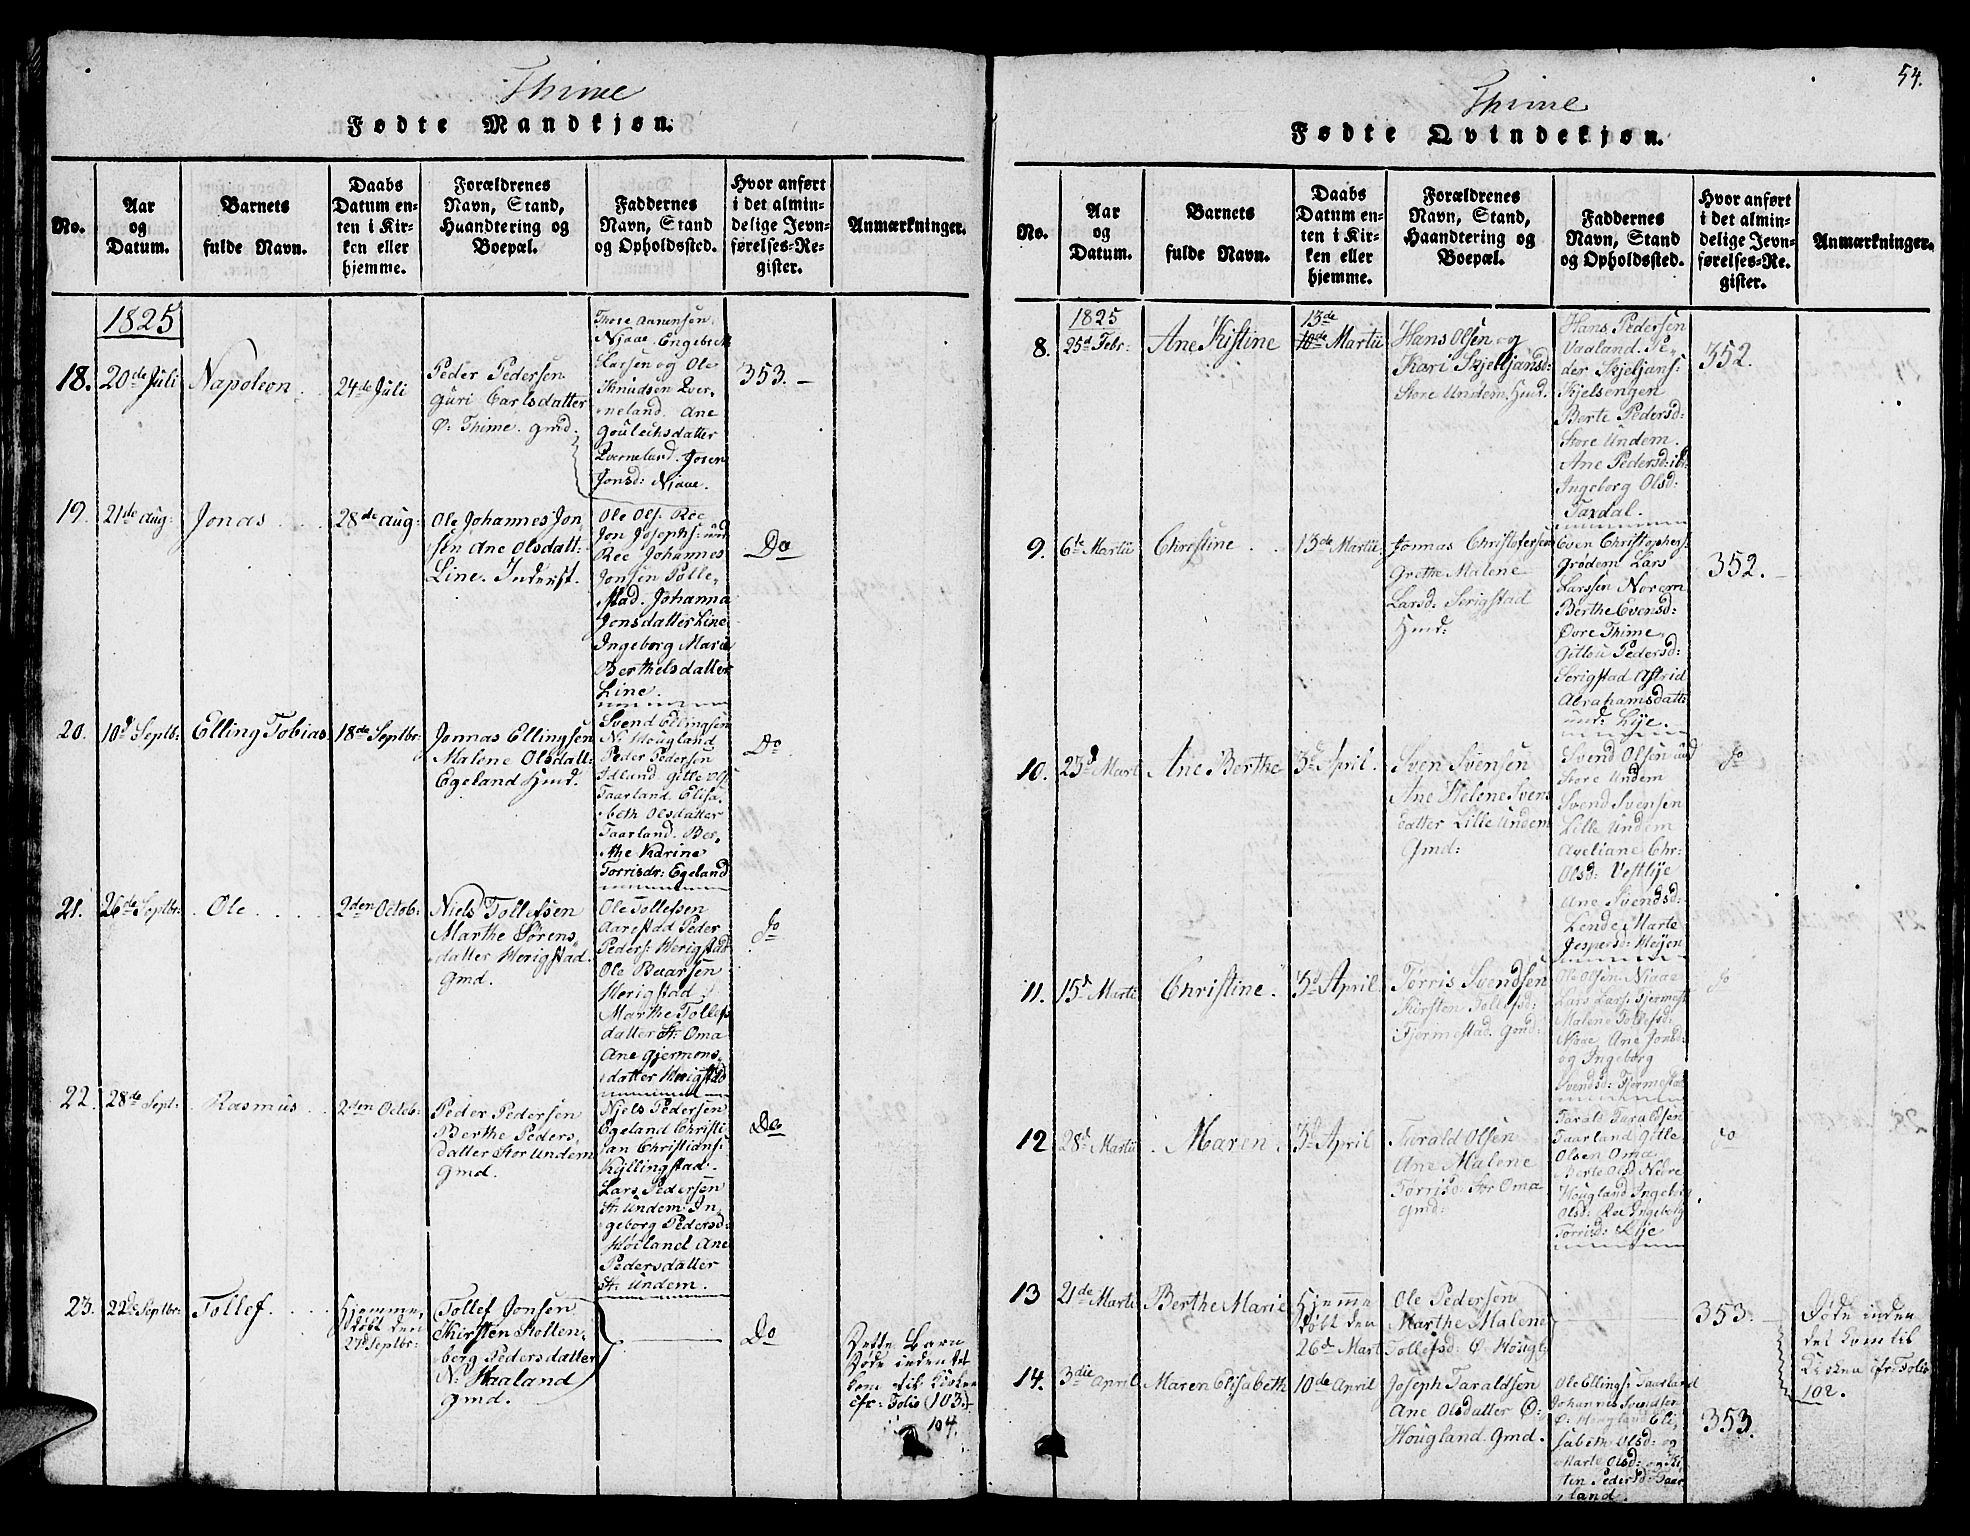 Thime
Fødte Mandkjøn.
No.
Aar
og
Datum.
Barnets
fulde Navn.
Daabs
Datum en-
ten i Kir-
ken eller
hjemme.
Forældrenes
Navn, Stand,
Huandtering og
Boepæl.
Faddernes
Navn, Stand
og Opholdssted.
Hvor anført
i det almin-
delige Jevn-
førelses-Re-
gister.
Anmærkninger.
1825
18.
20de Juli
Napoleon
24de Juli
Peder Pedersen
Guri Carlsdatter
Ø: Thime. gmd.
Thore Aanensen
Njaae. Engebreck
Larsen og Ole
Knudsen Qver-
neland. Ane
Goulechsdatter
Qverneland. Joren
Jonsd: Njaae.
353.
19.
21de Aug:
Jonas
28de Aug:
Ole Johannes Jon
sen Ane Olsdatt:
Line. Inderst.
Ole Ols. Roe
Jon Josephs: und
Roe Johannes
Jonsen Polle-
stad. Johanna
Jonsdatter Line
Ingeborg Marie
Berthelsdatter
Line.
Do
20.
10d Septb:
Elling Tobias
18de Septbr:
Jonnas Ellingsen
Malene Olsdatt:
Egeland Huud.
Svend Ellingsen
N: Hougland
Peder Pedersen
Idland Gitle Ols
Taarland. Elisa-
beth Olsdatter
Taarland. Ber-
the Karine
Torrisdr: Egeland
Do
21.
26de Septbr:
Ole
2den Octob:
Niels Tollefsen
Marthe Sørens-
datter Herigstad.
Gmd.
Ole Tollefsen
Aarestad Peder
Peders: Herigstad
Ole Baarsen
Herigstad
Marthe Tollefs
datter St: Oma
Ane Gjermons-
datter Herigstad
do
22.
28de Sept:
Rasmus
2den Octob:
Peder Pedersen
Berthe Peders-
datter Stor Undem
gmd.
Njels Pedersen
Egeland Christi
an Christians:
Kyllingstad.
Lars Pedersen
St: Undem. In-
geborg Pedersd:
Høiland Ane
Pedersdatter
St: Undem.
Do
23.
22de Septbr:
Tollef
Hjemme
døbt den
27d Septbr:
Tollef Jonsen
Kirsten Stolten-
berg Pedersdatter
N: Haaland
Gmd.
Do
Dette Barn
døde inden det
kom til Kirken
cfr: Folio (103.)
104.
54.
Thime
Fødte Qvindekjøn.
No.
Aar
og
Datum.
Barnets
fulde Navn.
Daabs
Datum en-
ten i Kir-
ken eller
hjemme.
Forældrenes
Navn, Stand,
Haandtering og
Boepæl.
Faddernes
Navn, Stand
og Opholdssted.
Hvor anført
i det almin-
delige Jevn-
førelses-Re-
gister.
Anmærkninger.
1825
8.
25d Febr:
Ane Kistine
13de
Martii
Hans Olsen og
Kari Skjelljansd:
Store Undem. Huud.
Hans Pedersen
Vaaland. Pe-
der Skjeljans:
Skjelsengen
Berte Pedersd:
Store Undem.
Ane Pedersd: ib:
Ingeborg Olsd:
Taxdal.
352.
9.
6te Martii
Christine
13de Martii
Jonnas Christofersen
Grethe Malene
Larsd: Serigstad
Huud:
Even Christophers:
Grødem Lars
Larssen Norem
Berthe Evensd:
Øvre Thime
Gitlou Pedersd:
Serigstad Astrid
Abrahamsdatte
und: Lye.
352.
10.
23d Mart
Ane Berthe
3d April
Sven Svensen
Ane Helene Svens
datter Lille Undem
Gmd:
Svend Olsen und
Store Undem
Svend Svensen
Lille Undem
Axeliane Chr:
Olsd: Vestlye
Ane Svendsd:
Lende Marte
Jespersd: Høijen
do
11.
15d Marti
Christine.
3d April
Torris Svendsen
Kirsten Tollefsd:
Tjormestad. Gmd:
Ole Olsen Njaae
Lars Lars: Tjermest
Malene Tollefsd:
Njaae Ane Jonsd:
og Ingeborg
Svendsd: Tjormestad
do
12
28d Martii
Maren
3d April
Tarald Olsen
Ane Malene
Torrisd: Stor Oma
Gmd:
Tarald Taraldsen
Taarland Gitle
Olsen Oma
Berte Olsd Nedre
Hougland Ingebor
Olsd: Roe Ingeborg
Torrisd: Lye
do
13
21de Marti
Berthe Marie
Hjemme
døbt den
26d Mart
Ole Pedersen
Marthe Malene
Tollefsd: Ø Hougl:
353.
Døde inden
det kom til
Kirken cfr: Folio
102.
14.
3die April
Maren Elisabeth
10de April
Joseph Taraldsen
Ane Olsdatter Ø:
Hougland. gmd.
Ole Ellings: Taarland
Johannes Svendsen
Ø: Hougland Eli-
sabeth Olsd: og
Marte Olsd: og Ki
ten Pedersd: Taar
land.
353.